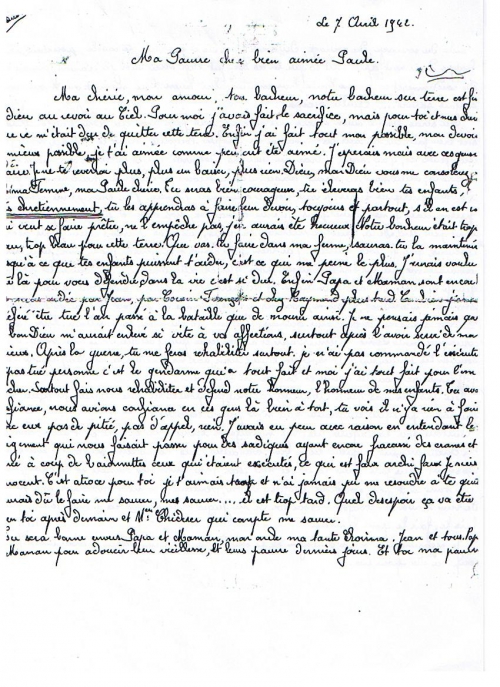 Le 7 Avril 1942.
Ma Pauvre chère bien aimée Paule.
Ma chérie, mon amour, ton bonheur, notre bonheur sur terre est fini
dieu au revoir au Ciel. Pour moi j'avais fait le sacrifice, mais pour toi et nus
ce m'était dur de quitter cette terre. Enfin j'ai fait tout mon possible, mon devoir
mieux possible, je t'ai aimée comme peu ont été aimé. J'espérais mais avec
Je ne te revoir plus, plus un baiser, plus rien. Dieu, mon Dieu vous me consoler
ma Femme, ma Paule chérie. Tu seras bien courageuse, tu élèveras bien tes enfants,
chrétiennement, tu les apprendras à faire leur devoir, toujours et partout, s'il en est
veut se faire prêtre, ne l'empêche pas, j'en aurais été heureux. Notre bonheur était trop
trop beau pour cette terre. Que vas-tu faire dans ma ferme, sauras-tu la maintenir
qu'à ce que tes enfants puissent t'aider, c'est ce qui me peine le plus. J'aurais voulu
là pour vous défendre dans la vie c'est si dur. Enfin Papa et Maman sont encore
aidée par Jean, par Cousin et Raymond plus tard
été tué l'an passé à la bataille que de mourir ainsi. Je ne pensais jamais
bon Dieu m'aurait enlevé si vite à vos affections, surtout après l'avoir servi de
ieux. Après la guerre, tu me feras réhabiliter surtout, je n'ai pas commandé l'exécution
pas tué personne c'est le gendarme qui a tout fait et moi j'ai tout fait pour l'em
cher. Surtout fais nous réhabiliter et défend notre honneur, l'honneur de mes enfants. Tu avais
fiance, nous avions confiance en ces gens là bien à tort, tu vois il n'y a rien à faire
ec eux pas de pitié, pas d'appel, rien. J'avais eu peur avec raison en entendant le
jugement qui nous faisait passer pour des sadiques ayant encore fracassé des crânes et
à coup de baïonnettes ceux qui étaient exécutés, ce qui est faux archi faux. Je suis
nocent. C'est atroce pour toi je t'aimais trop et n'ai jamais pu me resoudre à te quit
mais dû le faire me sauver, mes sauver.... il est trop tard. Quel desespoir ça va être
toi après demain et Mme qui compte me sauver.
Tu sera bonne envers Papa et Maman, ma tante, Jean et tous. Pap
Maman pour adoucir leur vieillesse, et leurs pauvre derniers jours. Et toi ma pauvre